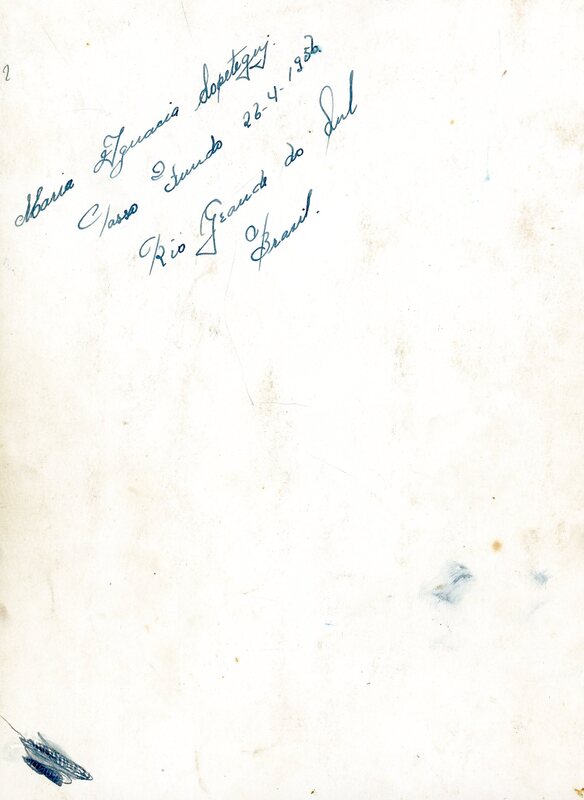 Maria Ignacia Sopetegui.
Passo Fundo 26-4-1956
Rio Grande do Sul
Brasil.